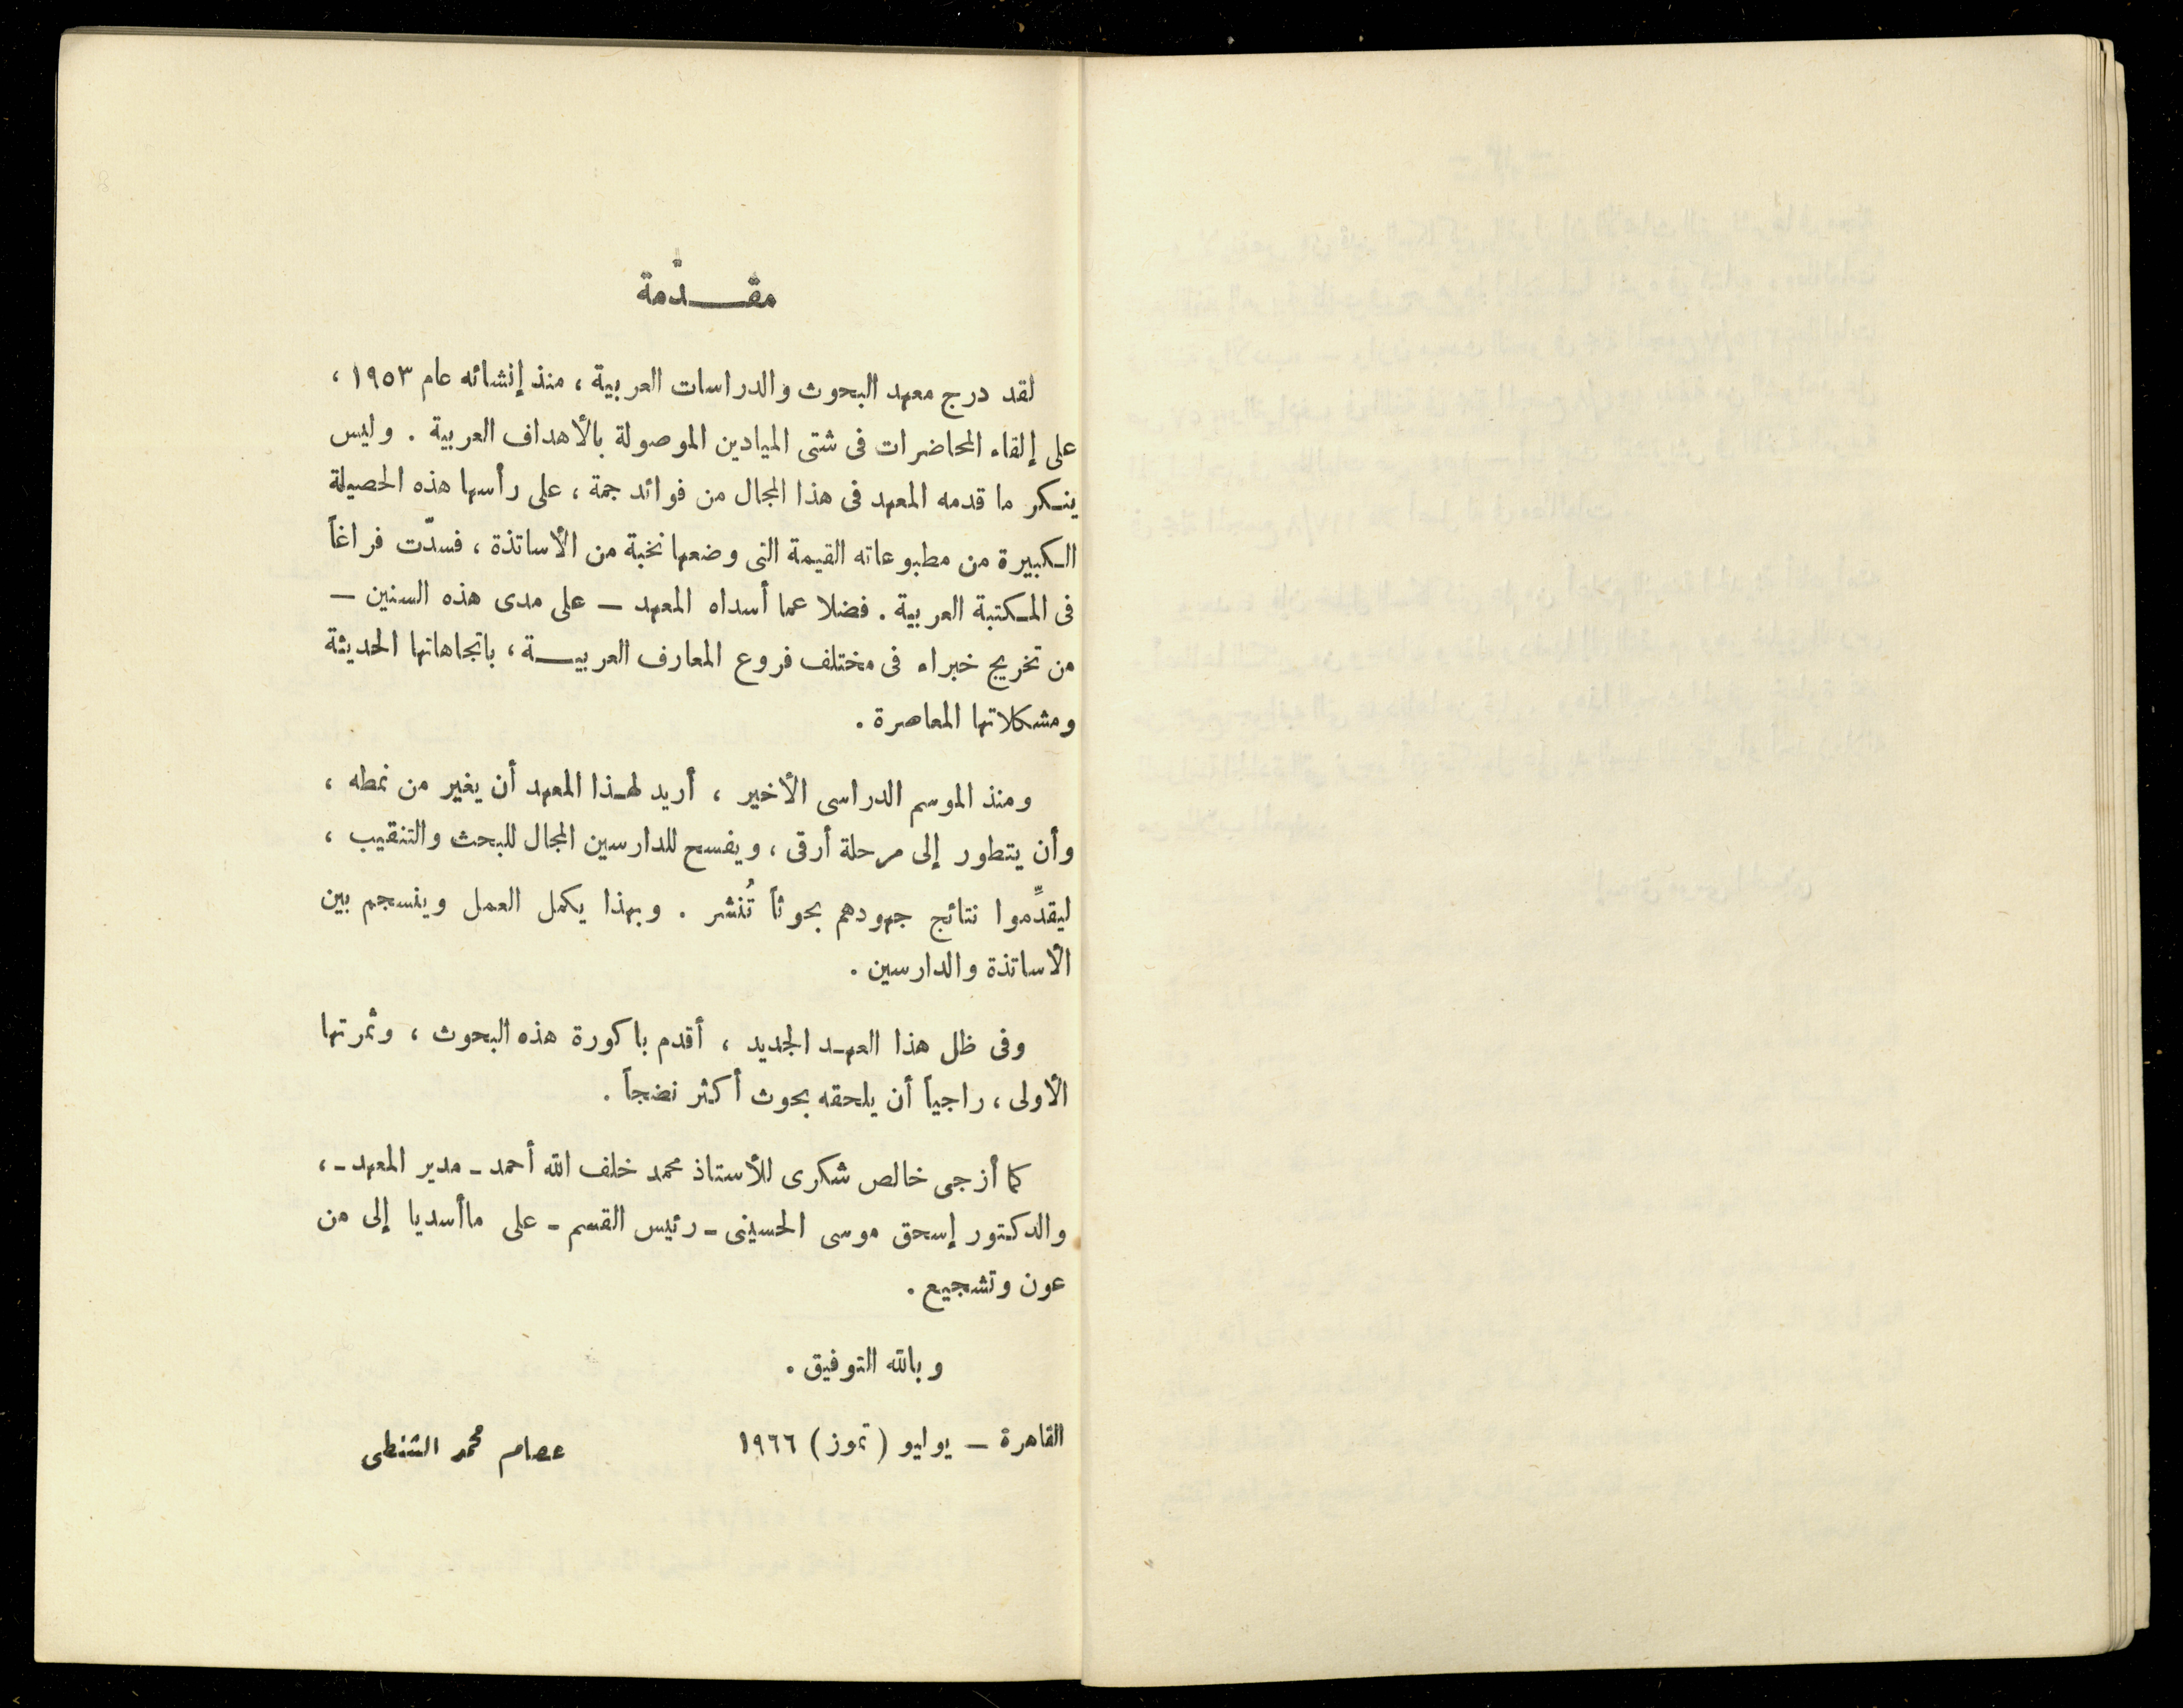 مقدّمة
لقد درج معهد البحوث والدراسات العربية ، منذ إنشائه عام ١٩٥٣ ،
على إلقاء المحاضرات فى شتى الميادين الموصولة بالأهداف العربية . وليس
ينكر ما قدمه المعهد فى هذا المجال من فوائد جمة ، على رأسها هذه الحصيلة
الكبيرة من مطبوعاته القيمة التى وضعها نخبة من الأساتذة ، فسدّت فراغاً
فى المكتبة العربية . فضلا عما أسداه المعهد — على مدى هذه السنين —
من تخريج خبراء فى مختلف فروع المعارف العربية ، باتجاهاتها الحديثة
ومشكلاتها المعاصرة .
ومنذ الموسم الدراسى الأخير ، أريد لهذا المعهد أن يغير من نمطه ،
وأن يتطور إلى مرحلة أرقى ، ويفسح للدارسين المجال للبحث والتنقيب ،
ليقدِّموا نتائج جهودهم بحوثاً تُنشر . وبهذا يكمل العمل وينسجم بين
الأساتذة والدارسين .
وفى ظل هذا العهد الجديد ، أقدم باكورة هذه البحوث ، وثمرتها
الأولى ، راجياً أن يلحقه بحوث أكثر نضجاً .
كما أزجى خالص شكرى للأستاذ محمد خلف الله أحمد - مدير المعهد - ،
والدكتور إسحق موسى الحسينى - رئيس القسم - على ماأسديا إلى من
عون وتشجيع .
وبالله التوفيق .
القاهرة — يوليو ( تموز ) ١٩٦٦ عصام محمد الشنطى